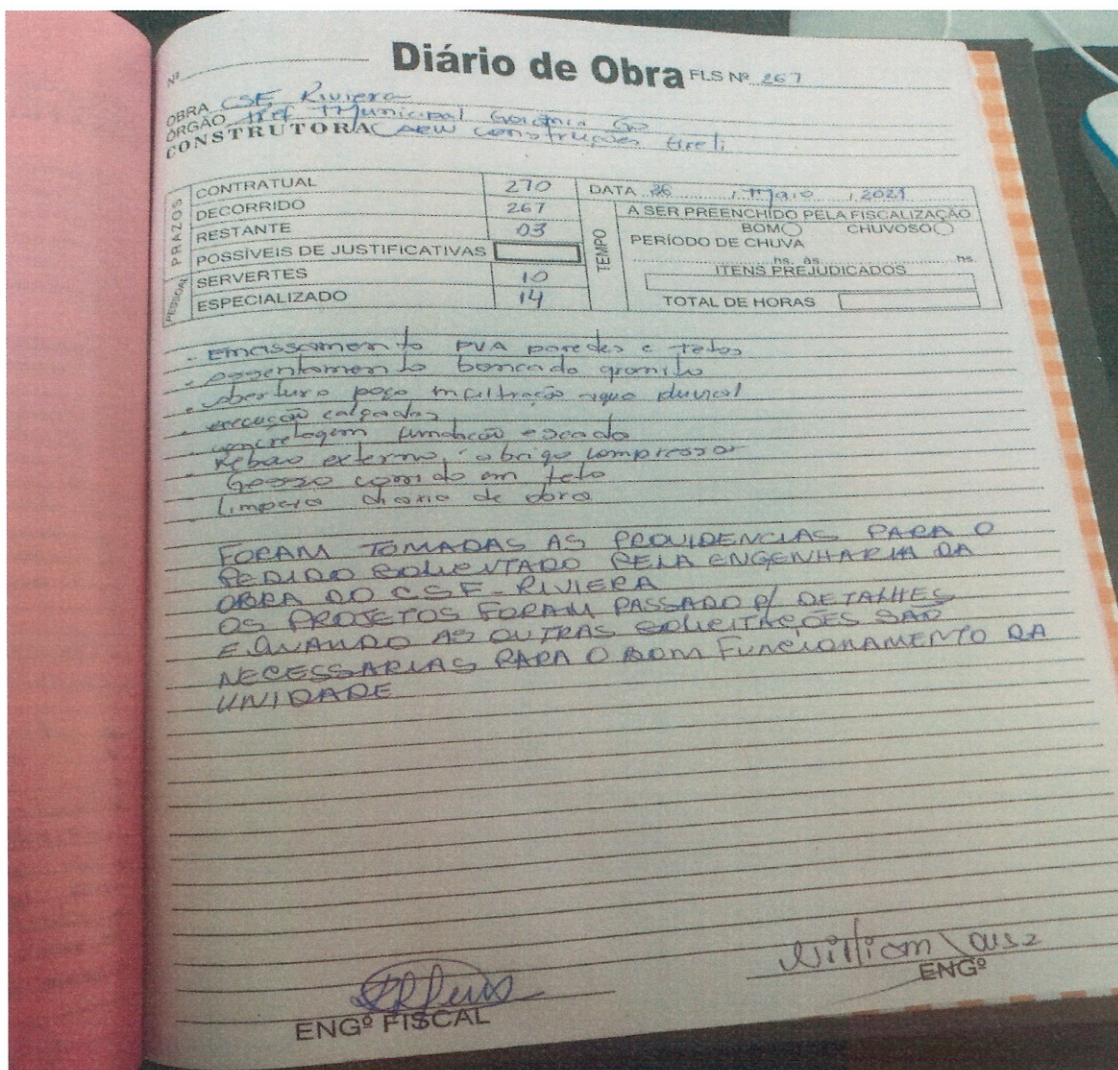 Nº Diário de Obra FLS Nº 267
OBRA CSF Riviera
ÓRGÃO Pref Municipal Goiânia Go
CONSTRUTORA construções Eireli
PRAZOS
CONTRATUAL 270
DECORRIDO 267
RESTANTE 03
POSSÍVEIS DE JUSTIFICATIVAS
PESSOAL
SERVERTES 10
ESPECIALIZADO 14
DATA 26 / Maio / 2021
TEMPO
A SER PREENCHIDO PELA FISCALIZAÇÃO
BOM CHUVOSO
PERÍODO DE CHUVA
hs. às hs.
ITENS PREJUDICADOS
TOTAL DE HORAS
- Emassamento PVA paredes e tetos
- assentamento bancada granito
- abertura poço infiltração agua pluvial
- execução calçadas
concretagem fundação escada
- Reboco externo, abrigo compressor
Gesso corrido em teto
Limpeza diaria de obra
FORAM TOMADAS AS PROVIDENCIAS PARA O
PEDIDO SOLICITADO PELA ENGENHARIA DA
OBRA DO CSF - RIVIERA
OS PROJETOS FORAM PASSADO P/ DETALHES
E QUANDO AS OUTRAS SOLICITAÇÕES SÃO
NECESSARIAS PARA O BOM FUNCIONAMENTO DA
UNIDADE
William
ENGº
ENGº FISCAL